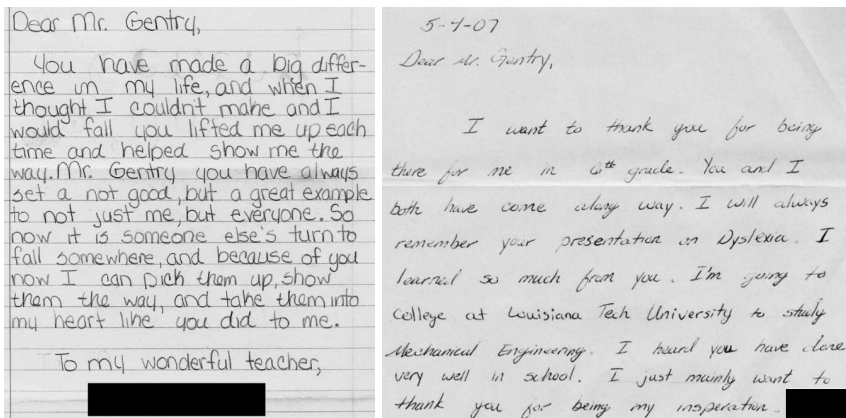 Dear Mr. Gentry,
You have made a big differ-
ence in my life, and when I
thought I couldn't make and I
would fall you lifted me up each
time and helped show me the
way. Mr. Gentry you have always
set a not good, but a great example
to not just me, but everyone. So
now it is someone else's turn to
fall somewhere, and because of you
now I can pick them up, show
them the way, and take them into
my heart like you did to me.
To my wonderful teacher,
5-4-07
Dear Mr. Gentry,
I want to thank you for being
there for me in 6th grade. You and I
both have come along way. I will always
remember your presentation on Dyslexia. I
learned so much from you. I'm going to
College at Louisiana Tech University to study
Mechanical Engineering. I heard you have done
very well in school. I just mainly want to
thank you for being my insperation.